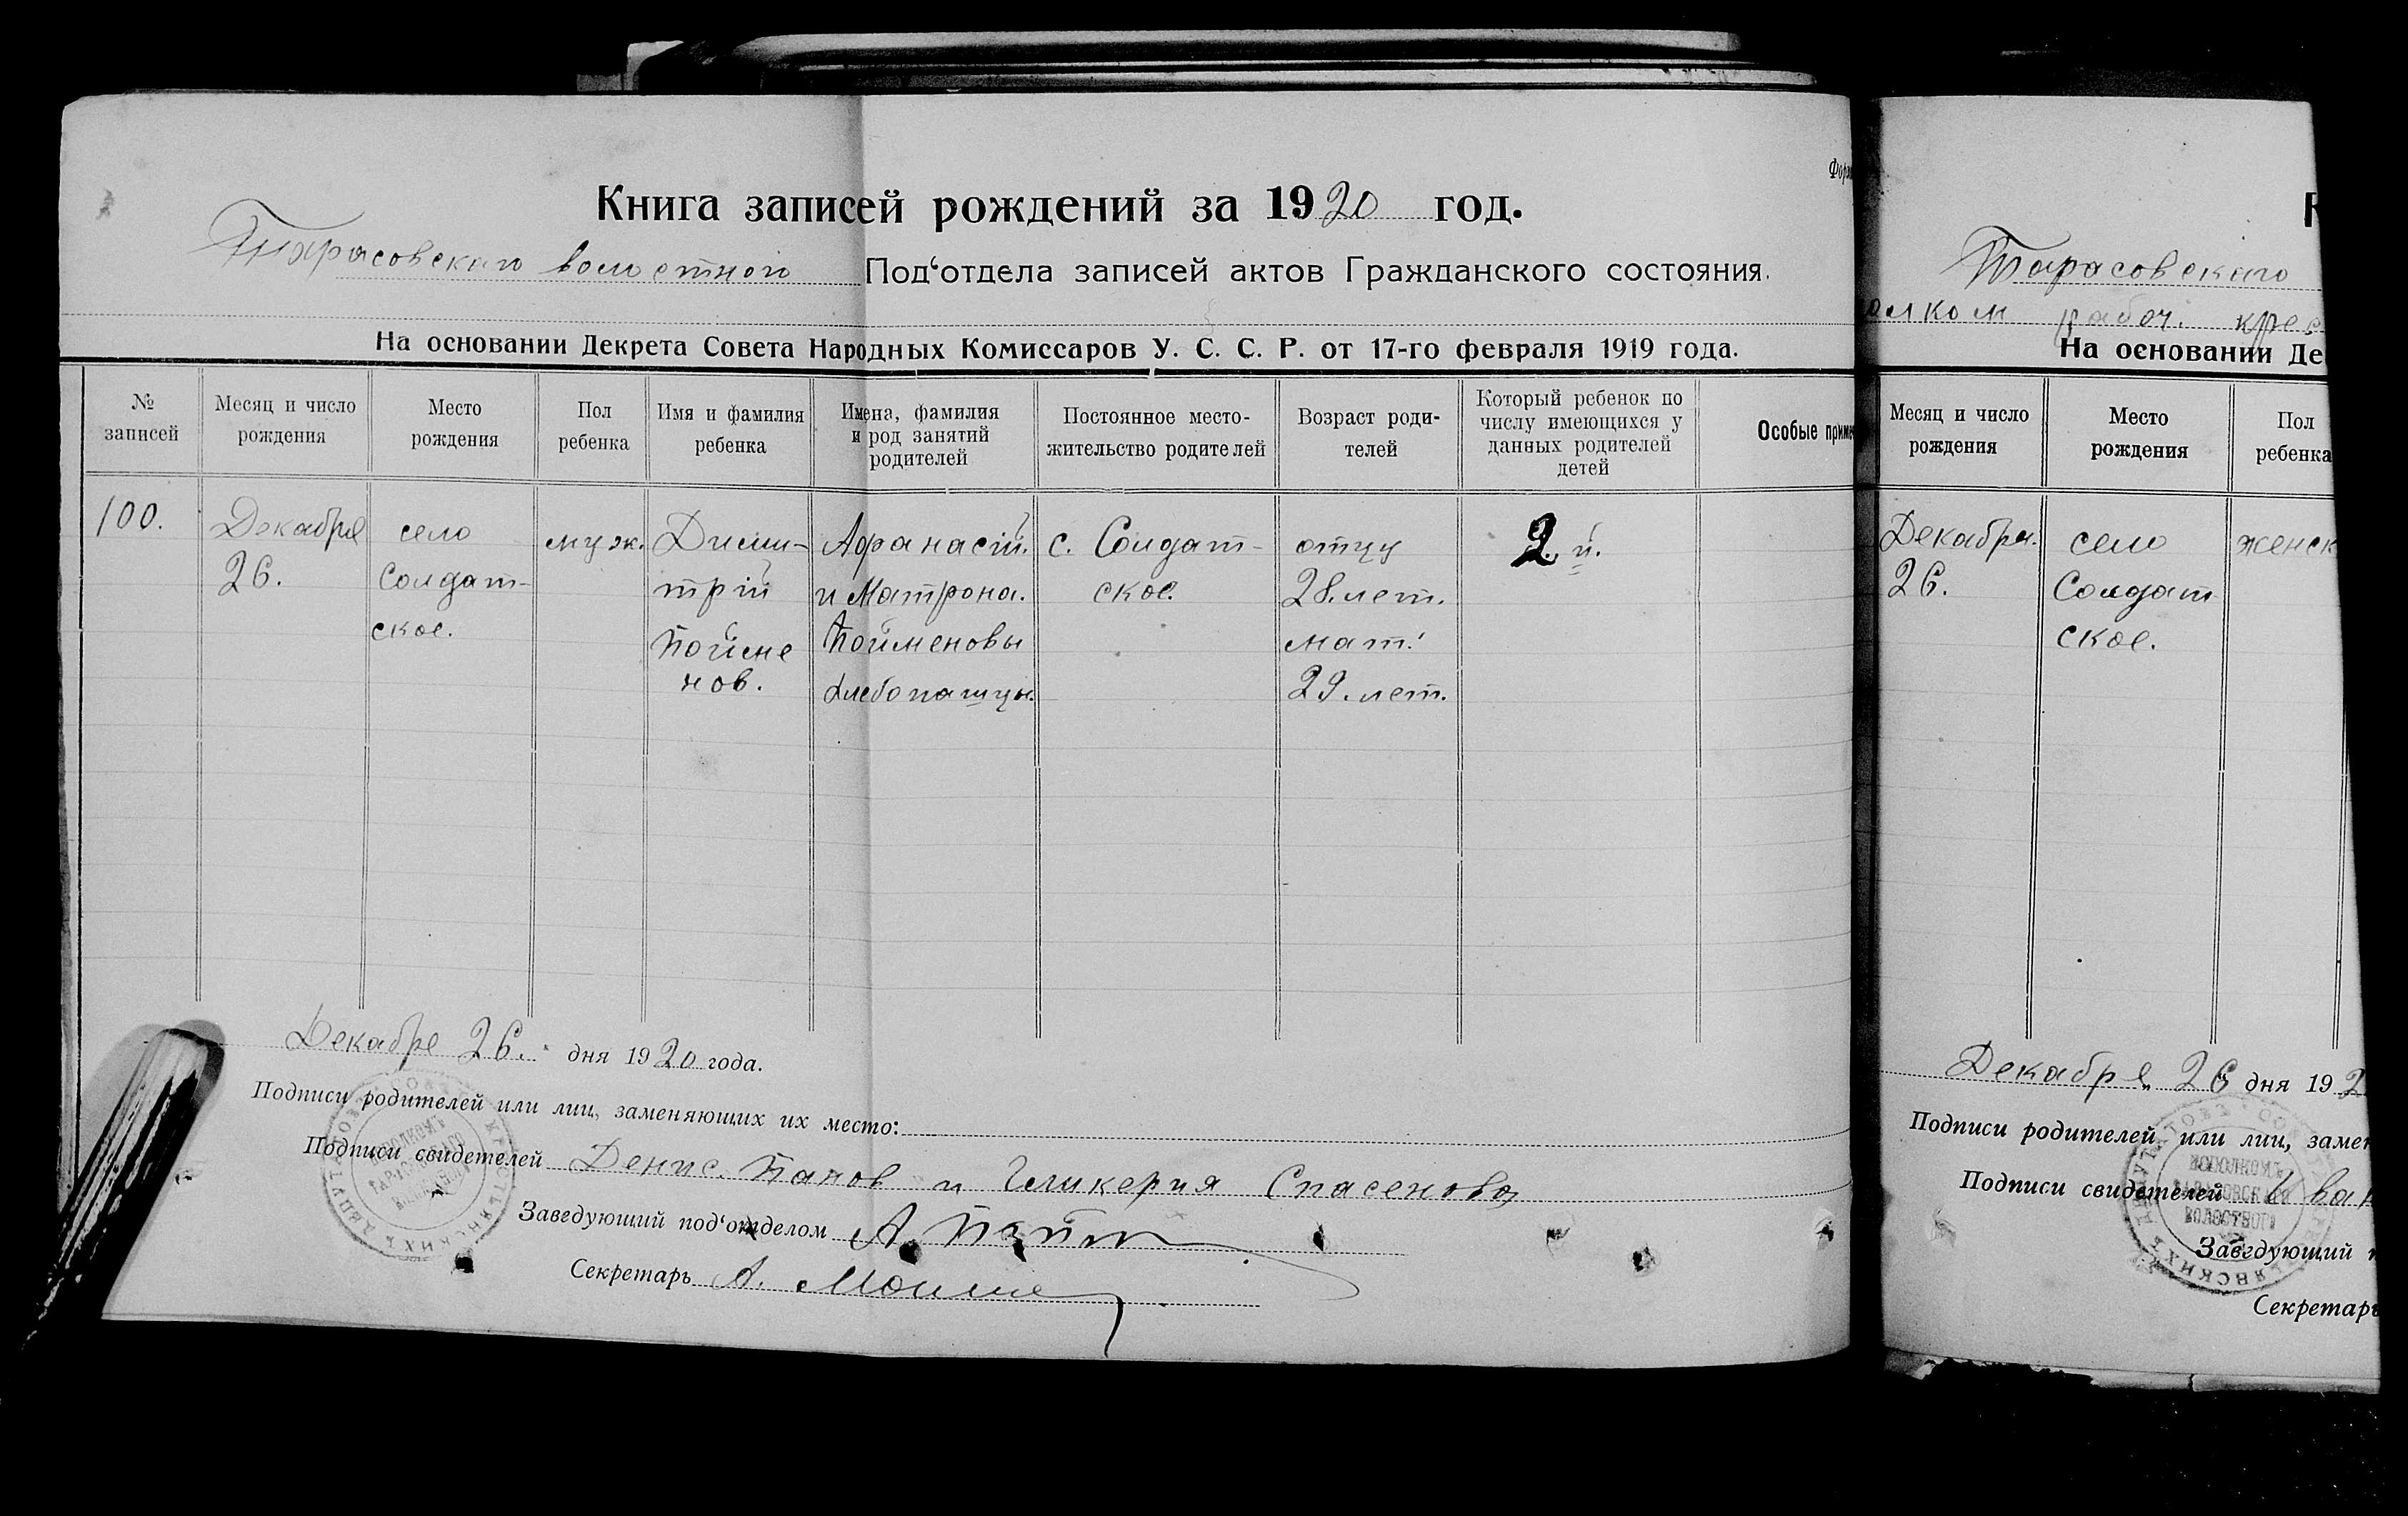 Форм
Книга записей рождений за 1920 год.
Тарасовскаго волостного Под‘отдела записей актов Гражданского состояния.
На основании Декрета Совета Народных Комиссаров У. С. С. Р. от 17-го февраля 1919 года.
№ записей
Месяц и число рождения
Место рождения
Пол ребенка
Имя и фамилия ребенка
Имена, фамилия и род занятий родителей
Постоянное место-жительство родителей
Возраст роди-телей
Который ребенок по числу имеющихся у данных родителей детей
Особые приме
100.
Декабря
26.
село
Солдат-
ское.
муж.
Дими-
трій
Пойме
нов.
Афанасій.
и Матрона.
Пойменовы
хлебопашцы.
с. Солдат-
ское.
отцу
28. лет.
мат.
29. лет.
2. й.
Декабре 26. дня 1920 года.
Подписи родителей или лиц, заменяющих их место:
Подписи свидетелей Денис. Папов и Гликерия Спасенова
Заведующий под‘отделом А.
Секретарь А.
К
Тарасовскаго
олком рабоч. крес
На основании Де
Месяц и число рождения
Место рождения
Пол ребенка
Декабря.
26.
село
Солдат
ское.
женск
Декабря 26 дня 192
Подписи родителей или лиц, замен
Подписи свидетелей Иван
Заведующий п
Секретарь